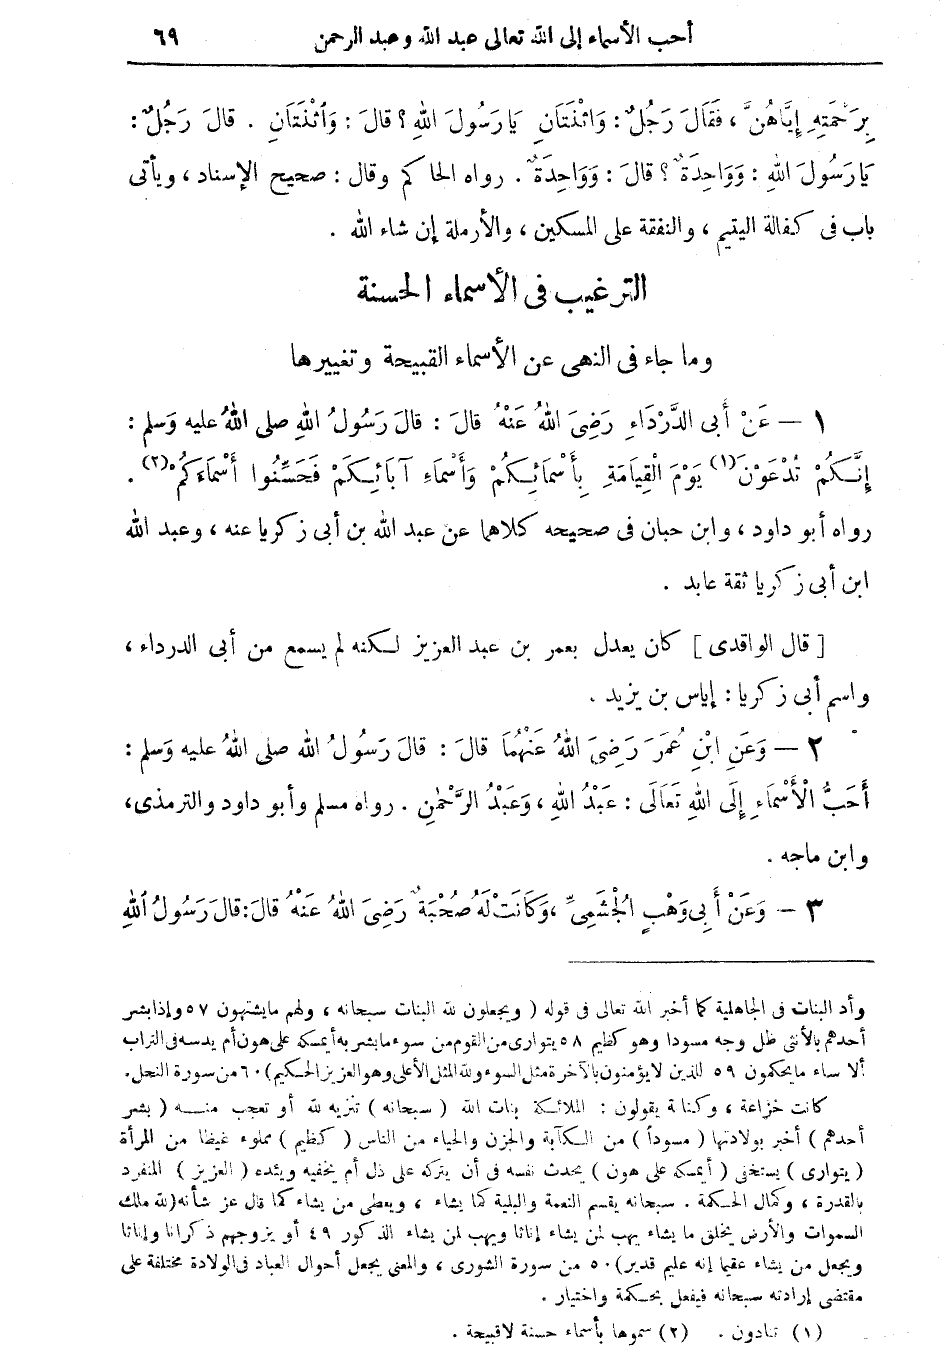 أحب الأسماء إلى الله تعالى عبد الله وعبد الرحمن ٦٩
بِرَحْمَتِهِ إِيَّاهُنَّ ، فَقَالَ رَجُلٌ : وَاثْنَتَانِ يَارَسُولَ اللهِ ؟ قالَ : وَاثْنَتَانِ . قالَ رَجُلٌ :
يَارَسُولَ اللهِ : وَوَاحِدَةٌ ؟ قالَ : وَوَاحِدَةٌ . رواه الحاكم وقال : صحيح الإسناد ، ويأتى
باب فى كفالة اليتيم ، والنفقة على المسكين ، والأرملة إن شاء الله .
الترغيب فى الأسماء الحسنة
وما جاء فى النهى عن الأسماء القبيحة وتغييرها
١ — عَنْ أَبى الدَّرْدَاءِ رَضِىَ اللهُ عَنْهُ قالَ : قالَ رَسُولُ اللهِ صلى اللهُ عليه وَسلم :
إِنَّكُمْ تُدْعَوْنَ (١) يَوْمَ الْقِيَامَةِ بِأَسْمَائِكُمْ وَأَسْمَاءِ آبَائِكُمْ فَحَسِّنُوا أَسْمَاءَكُمْ (٢) .
رواه أبو داود ، وابن حبان فى صحيحه كلاهما عن عبد الله بن أبى زكريا عنه ، وعبد الله
ابن أبى زكريا ثقة عابد .
[ قال الواقدى ] كان يعدل بعمر بن عبد العزيز لكنه لم يسمع من أبى الدرداء ،
واسم أبى زكريا : إياس بن يزيد .
٢ — وَعَنِ ابْنِ عُمَرَ رَضِىَ اللهُ عَنْهُمَا قالَ : قالَ رَسُولُ الله صلى اللهُ عليه وسلم :
أَحَبُّ الْأَسْمَاءِ إِلَى اللهِ تَعَالَى : عَبْدُ اللهِ ، وَعَبْدُ الرَّحْمٰنِ . رواه مسلم وأبو داود والترمذى،
وابن ماجه .
٣ — وَعَنْ أَبِى وَهْبٍ الْجُشَمِىِّ ، وَكَانَتْ لَهُ صُحْبَةٌ رَضِىَ اللهُ عَنْهُ قالَ : قالَ رَسُولُ اللهِ
وأد البنات فى الجاهلية كما أخبر الله تعالى فى قوله ( ويجعلون لله البنات سبحانه ، ولهم مايشتهون ٥٧ وإذا بشر
أحدهم بالأنثى ظل وجه مسودا وهو كظيم ٥٨ يتوارى من القوم من سوء مابشر به أيمسكه على هون أم يدسه فى التراب
ألا ساء مايحكمون ٥٩ للذين لايؤمنون بالآخرة مثل السوء ولله المثل الأعلى وهو العزيز الحكيم ) ٦٠ من سورة النحل.
كانت خزاعة ، وكنانة يقولون : الملائكة بنات الله ( سبحانه ) تنزيه لله أو تعجب منه ( بشر
أحدهم ) أخبر بولادتها ( مسوداً ) من الكآبة والحزن والحياء من الناس ( كظيم ) مملوء غيظا من المرأة
( يتوارى ) يستخفى ( أيمسكه على هون ) يحدث نفسه فى أن يتركه على ذل أم يخفيه ويئده ( العزيز ) المنفرد
بالقدرة ، وكمال الحكمة . سبحانه يقسم النعمة والبلية كما يشاء ، ويعطى من يشاء كما قال عز شأنه ( لله ملك
السموات والأرض يخلق ما يشاء يهب لمن يشاء إناثا ويهب لمن يشاء الذكور ٤٩ أو يزوجهم ذكرانا وإناثا
ويجعل من يشاء عقيما إنه عليم قدير ) ٥٠ من سورة الشورى ، والمعنى يجعل أحوال العباد فى الولادة مختلفة على
مقتضى إرادته سبحانه فيفعل بحكمة واختيار .
(١) تنادون . (٢) سموها بأسماء حسنة لا قبيحة .